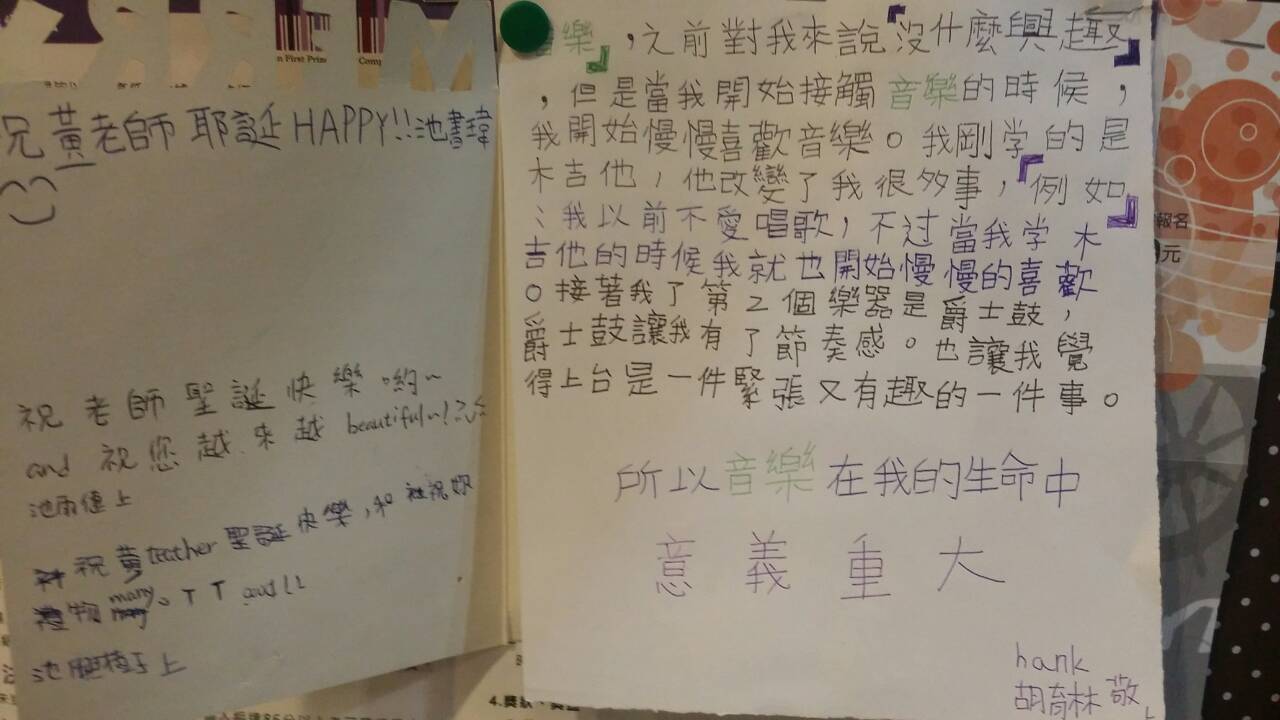 n First Prize
Comp
祝黃老師耶誕HAPPY!!池書瑋
祝老師聖誕快樂喲~
and 祝您越來越 beautiful~!
上
祝黃teacher聖誕快樂,和祝妳
禮物many。T T good!!
池 上
音樂』,之前對我來說『沒什麼興趣』
,但是當我開始接觸音樂的時候,
我開始慢慢喜歡音樂。我剛学的是
木吉他,他改變了我很多事,『例如
:我以前不愛唱歌,不过當我学木』
吉他的時候我就也開始慢慢的喜歡
。接著我了第2個樂器是爵士鼓,
爵士鼓讓我有了節奏感。也讓我覺
得上台是一件緊張又有趣的一件事。
所以音樂在我的生命中
意義重大
hank
胡育林敬上
報名
元